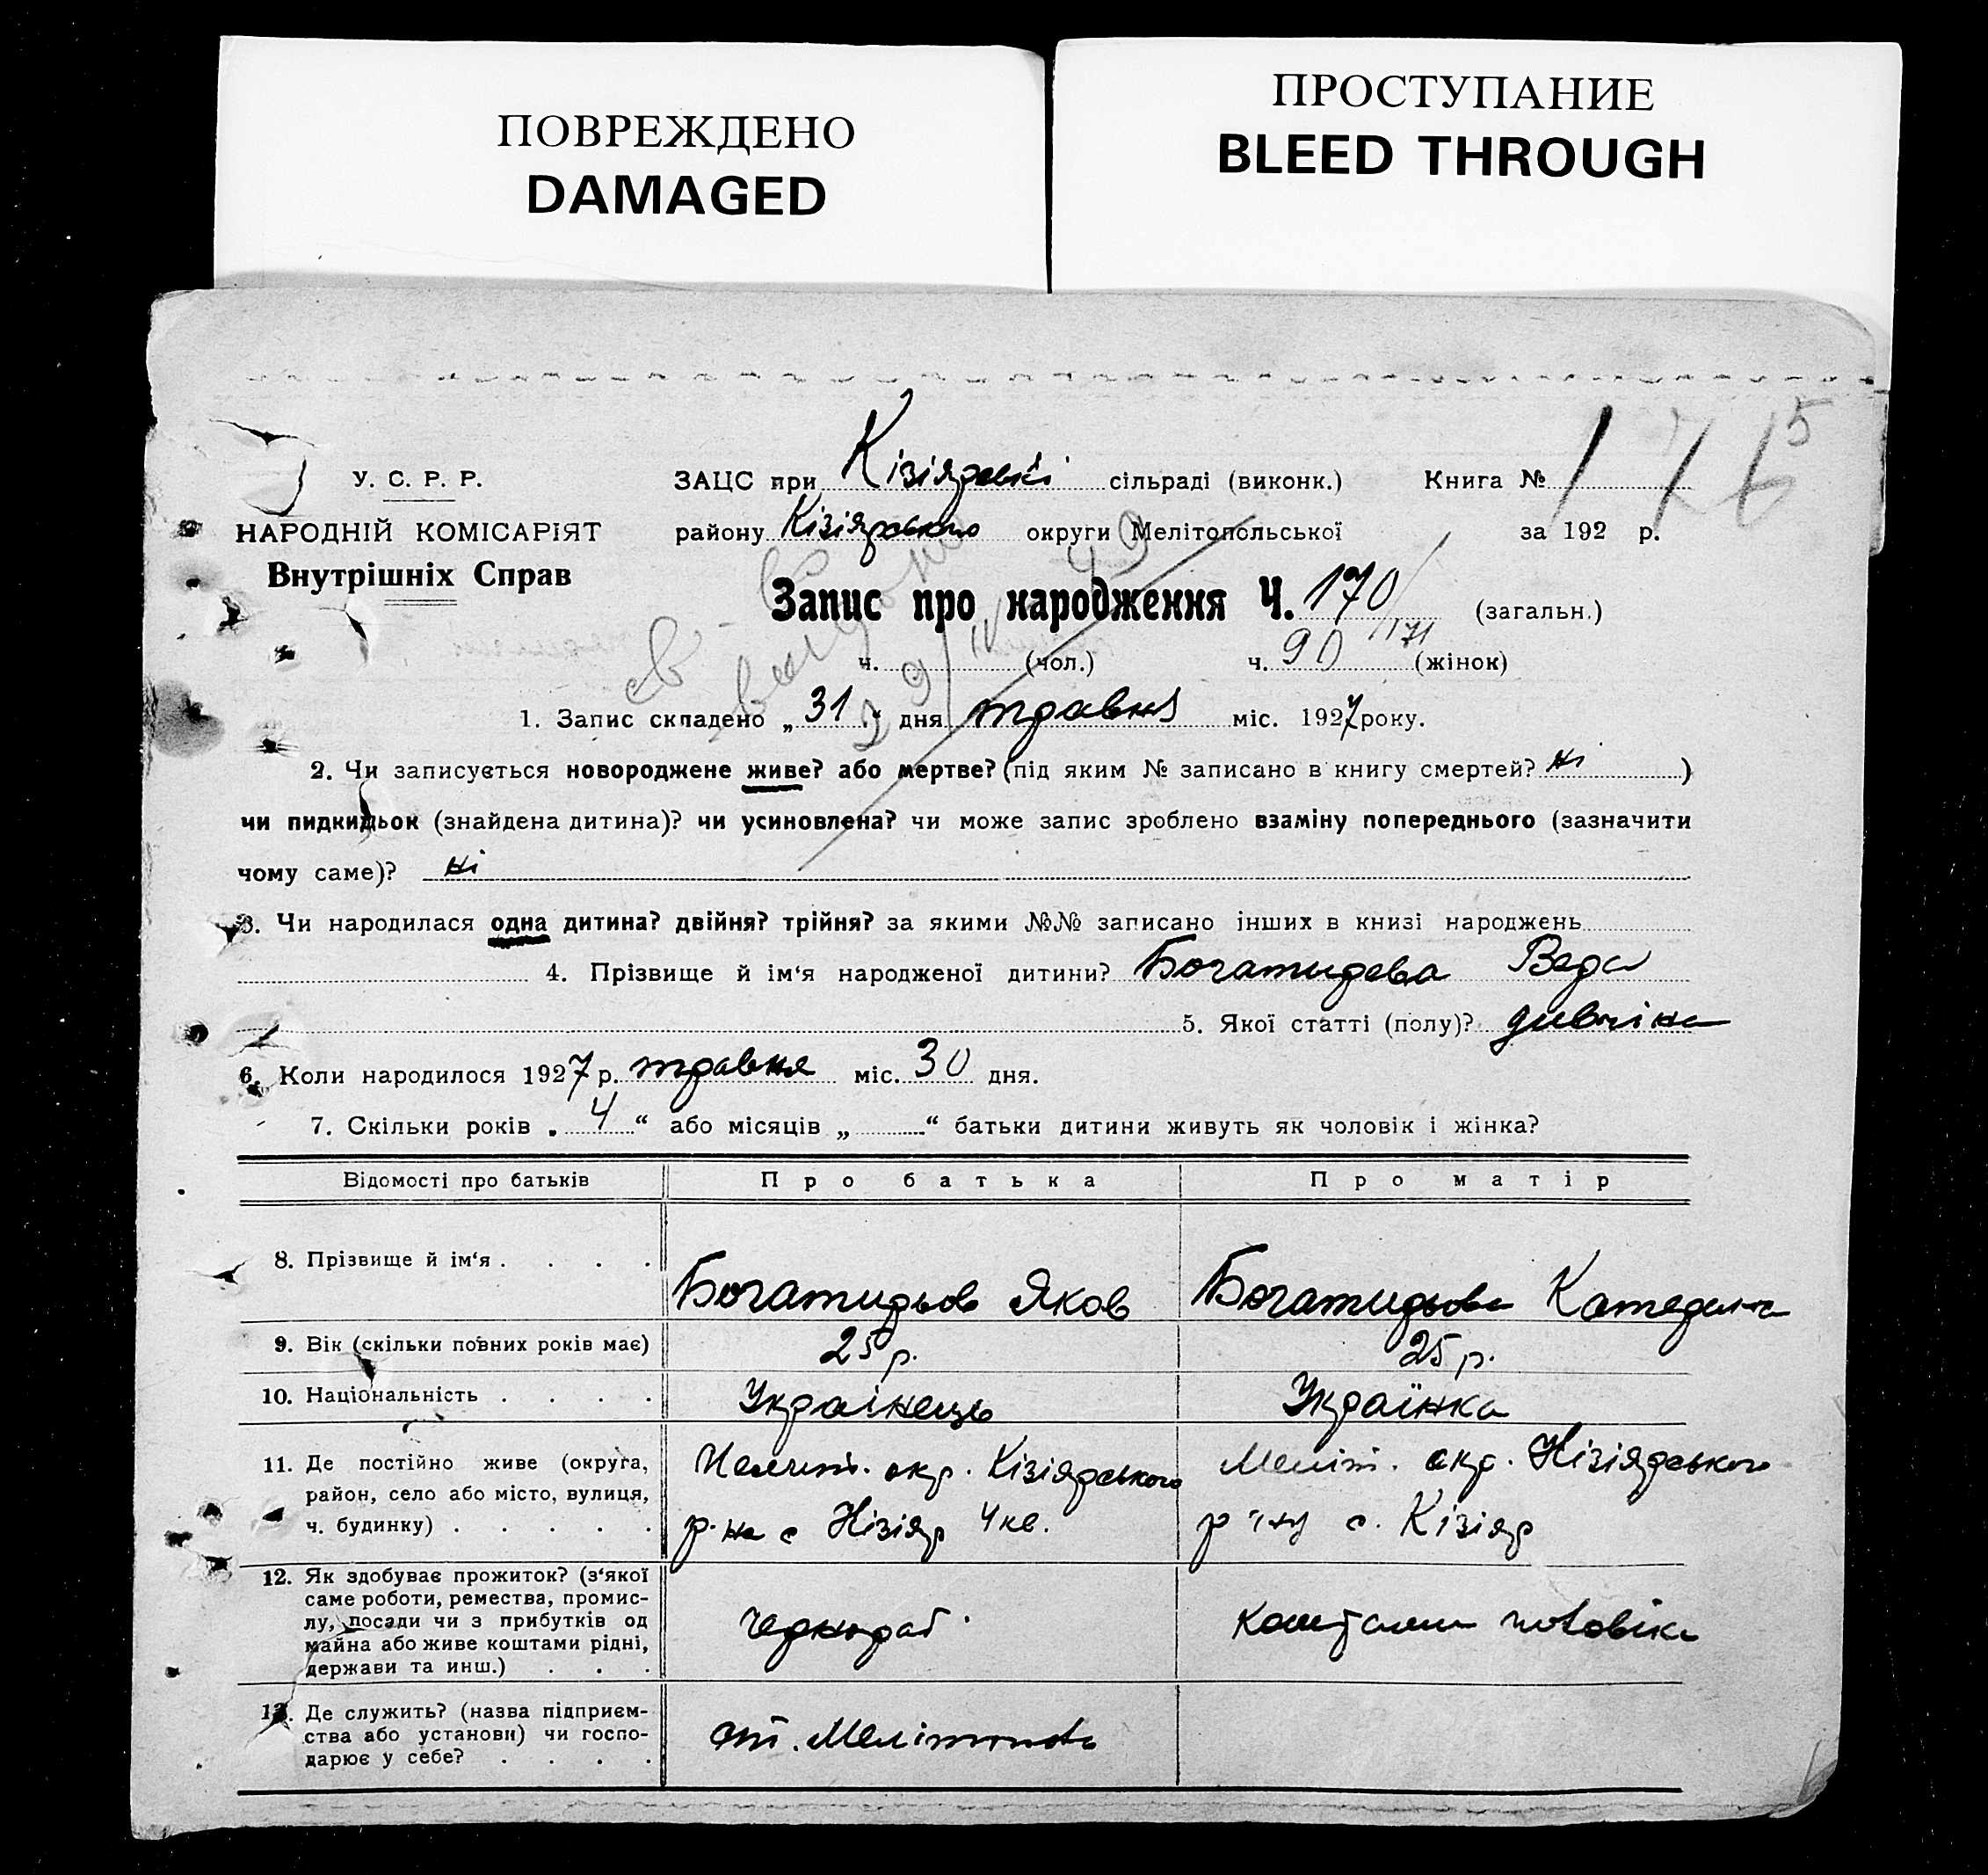 ПОВРЕЖДЕНО
DAMAGED
ПРОСТУПАНИЕ
BLEED THROUGH
5
У. С. Р. Р.
НАРОДНІЙ КОМІСАРІЯТ
Внутрішніх Справ
ЗАЦС при Кізіярській сільраді (виконк.) Книга № 1
району Кізіярського округи Мелітопольської за 192 р.
Запис про народження Ч. 170 (загальн.)
171
ч. (чол.) ч. 90 (жінок)
1. Запис складено „ 31 “ дня травня міс. 1927 року.
2. Чи записується новороджене живе? або мертве? (під яким № записано в книгу смертей? ні )
чи пидкидьок (знайдена дитина)? чи усиновлена? чи може запис зроблено взаміну попереднього (зазначити
чому саме)? ні
3. Чи народилася одна дитина? двійня? трійня? за якими №№ записано інших в книзі народжень
4. Прізвище й ім‘я народженої дитини? Богатирева Вера
5. Якої статті (полу)? дивчина
6. Коли народилося 1927 р. травня міс. 30 дня.
7. Скільки років „ 4 “ або місяців „ “ батьки дитини живуть як чоловік і жінка?
Відомості про батьків Про батька Про матір
8. Прізвище й ім‘я . . . . Богатирьов Яков Богатирьова Катерина
9. Вік (скільки повних років має) 25 р. 25 р.
10. Національність . . . . Українець Українка
11. Де постійно живе (округа,
район, село або місто, вулиця,
ч. будинку) . . . . .
Мелит. окр. Кізіярського
р-на с Кізіяр 4 кв.
Меліт. окр. Кізіярського
р-ну с. Кізіяр
12. Як здобуває прожиток? (з‘якої
саме роботи, ремества, промис-
лу, посади чи з прибутків од
майна або живе коштами рідні,
держави та инш.) . . .
чернораб.
коштами чоловіка
13. Де служить? (назва підприєм-
ства або установи) чи госпо-
дарює у себе? . . . .
ст. Мелітополь